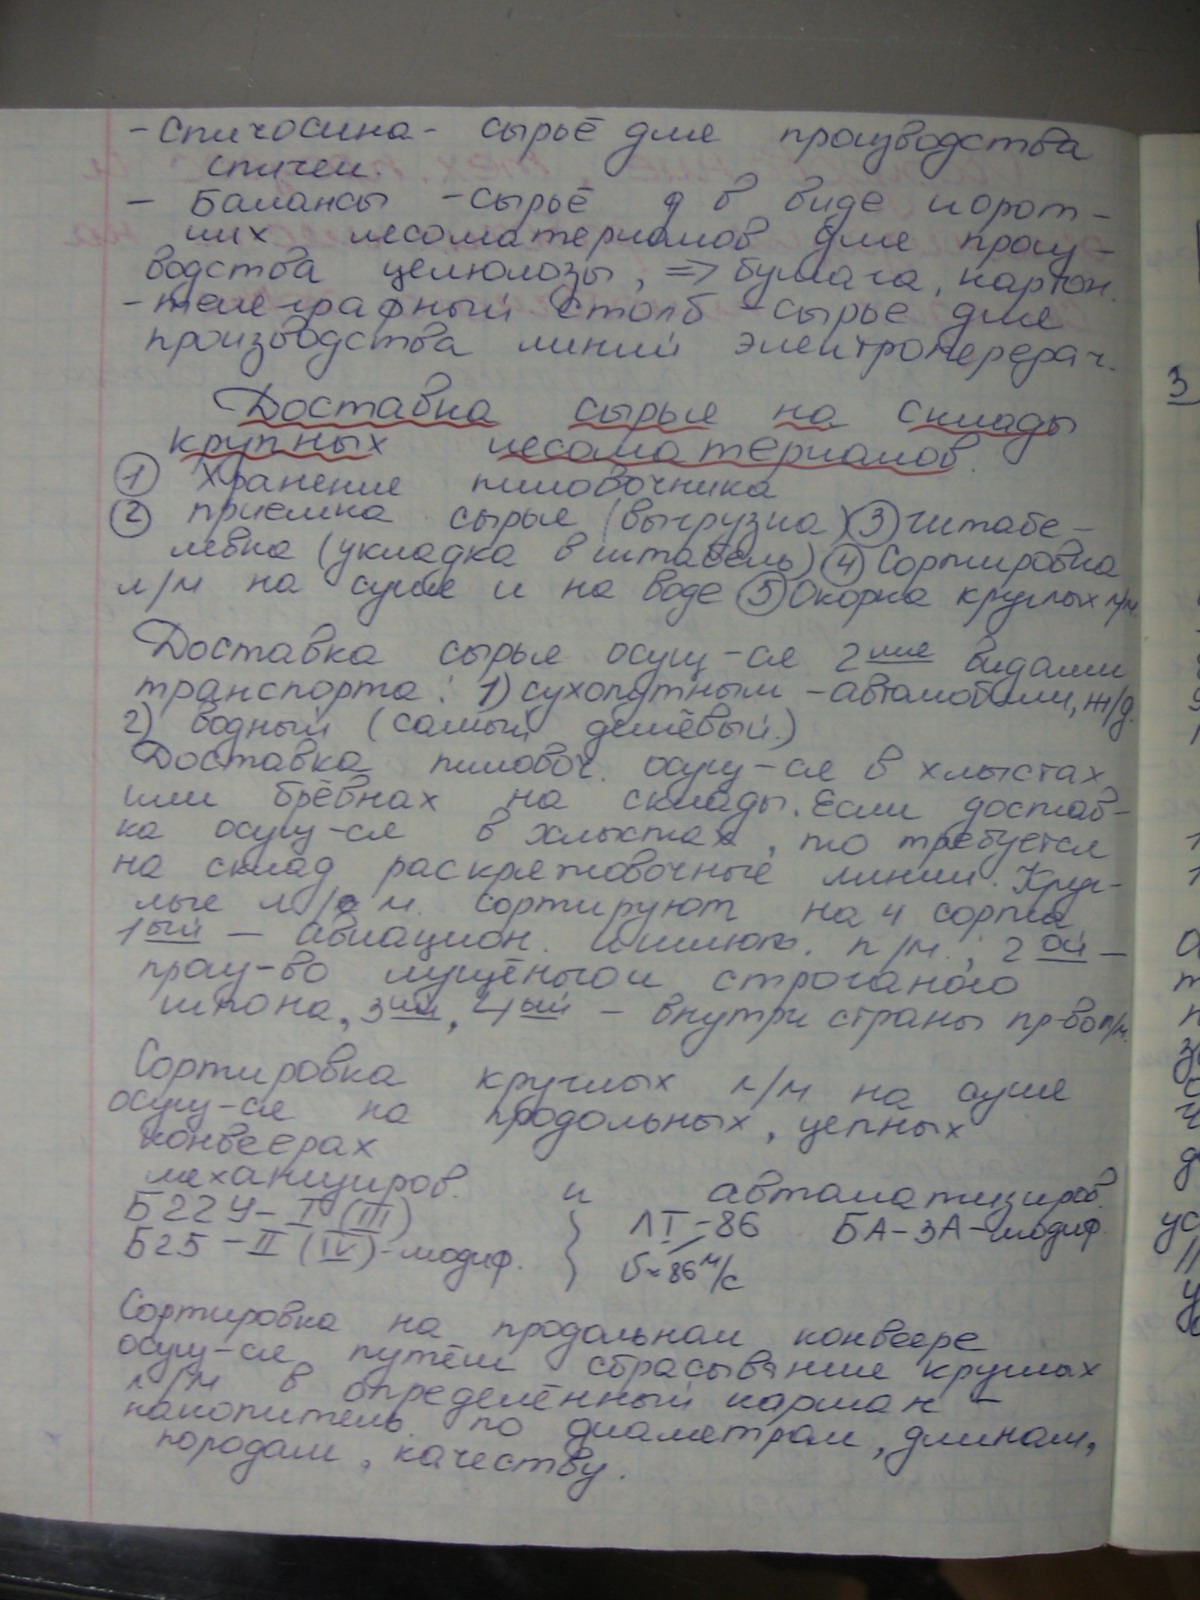 - Спичосина - сырьё для производства
спичек.
- Балансы - сырьё в виде корот-
ких лесоматериалов для произ-
водства целюлозы, => бумага, картон.
- телеграфный столб - сырьё для
производства линий электроперередач.
Доставка сырья на склады
крупных лесоматериалов.
① Хранение пиловочника
② приемка сырья (выгрузка) ③ штабе-
левка (укладка в штабель) ④ Сортировка
л/м на суше и на воде ⑤ Окорка круглых л/м
Доставка сырья осущ-ся 2мя видами
транспорта: 1) сухопутным - автомобили, ж/д.
2) водный (самый дешёвый.)
Доставка пиловоч. осущ-ся в хлыстах
или брёвнах на склады. Если достав-
ка осущ-ся в хлыстах, то требуется
на склад раскряжовочные линии. Круг-
лые л/м. сортируют на 4 сорта
1ый - авиацион. п/м.; 2ой -
произ-во лущёного и строганого
шпона, 3ий, 4ый - внутри страны пр-во п/м.
Сортировка круглых л/м на суше
осущ-ся на продольных, цепных
конвеерах
механизиров. и автоматизиров.
Б22У - I (III) } ЛТ-86 БА-3А - модиф.
Б25 - II (IV) - модиф. } v≈86м/с
Сортировка на продольном конвеере
осущ-ся путём сбрасывания круглых
л/м в определённый карман -
накопитель по диаметрам, длинам,
породам, качеству.